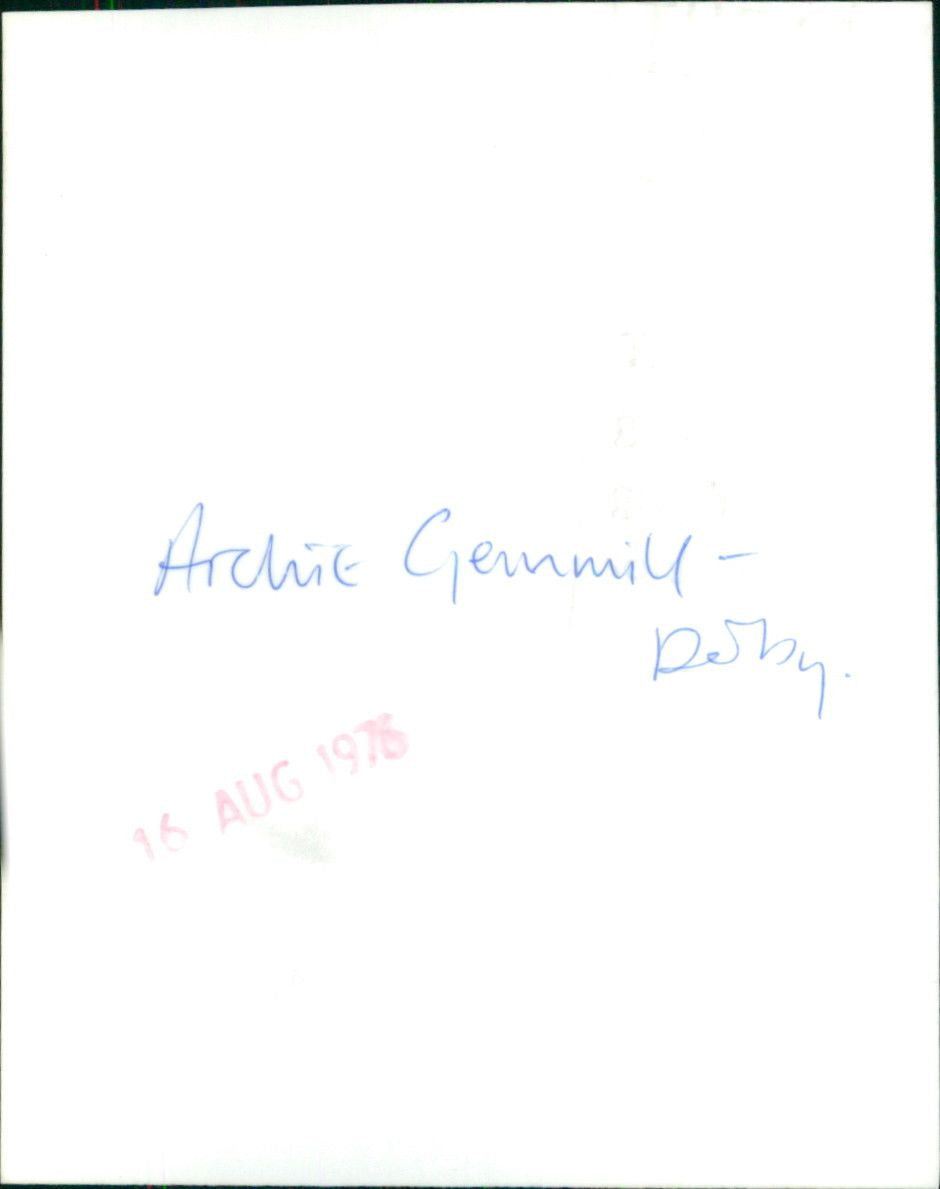 Archie Gemmill -
Derby.
16 AUG 1976